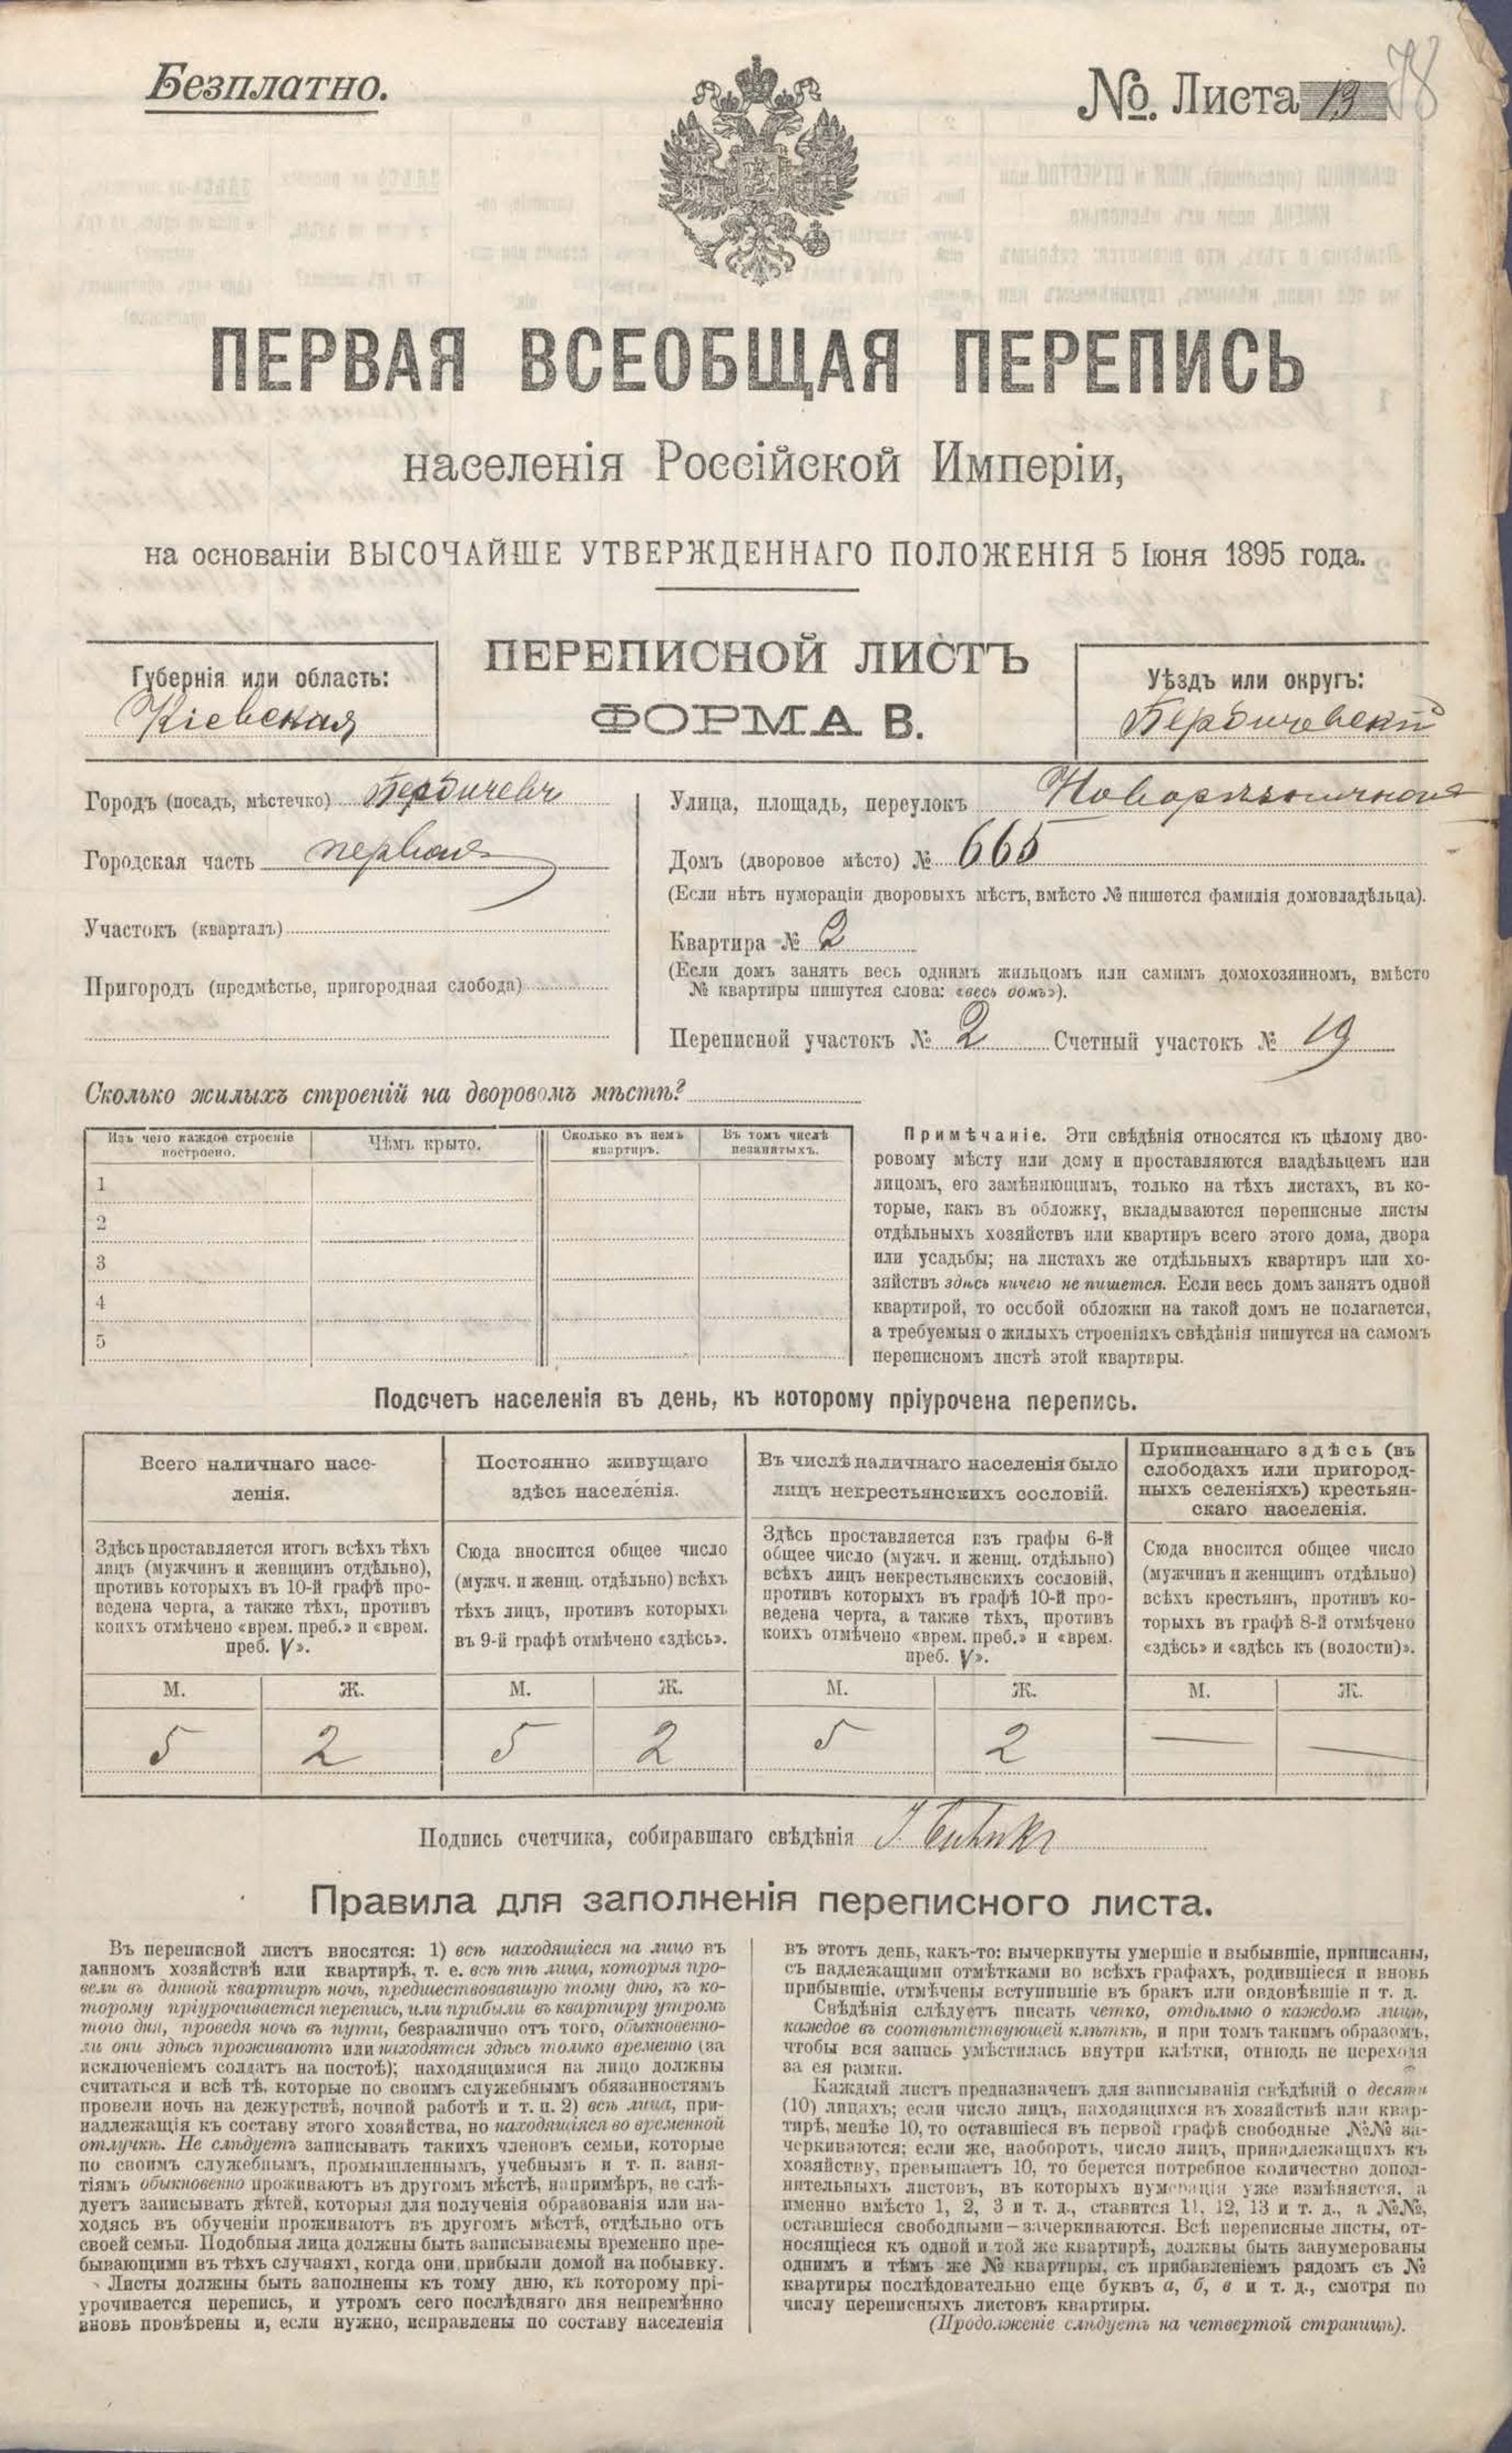 Безплатно.
№. Листа 13 78
ПЕРВАЯ ВСЕОБЩАЯ ПЕРЕПИСЬ
населенія Россійской Имперіи,
на основаніи ВЫСОЧАЙШЕ УТВЕРЖДЕННАГО ПОЛОЖЕНІЯ 5 Іюня 1895 года.
ПЕРЕПИСНОЙ ЛИСТЪ
ФОРМА В.
Губернія или область:
Кіевская
Уѣздъ или округъ:
Бердичевскій
Городъ (посадъ, мѣстечко) Бердичевъ
Городская часть первая
Участокъ (кварталъ)
Пригородъ (предмѣстье, пригородная слобода)
Улица, площадь, переулокъ
Домъ (дворовое мѣсто) № 665
(Если нѣтъ нумораціи дворовыхъ мѣстъ, вмѣсто № пишется фамилія домовладѣльца).
Квартира № 2
(Если домъ занятъ весь однимъ жильцомъ или самимъ домохозяиномъ, вмѣсто
№ квартиры пишутся слова: «весь домъ»).
Переписной участокъ № 2 Счетный участокъ № 19
Сколько жилыхъ строеній на дворовомъ мѣстѣ?
Изъ чего каждое строеніе
построено.
Чѣмъ крыто.
Сколько въ немъ
квартиръ.
Въ томъ числѣ
незанятыхъ.
1
2
3
4
5
Примѣчаніе. Эти свѣдѣнія относятся къ цѣлому дво-
ровому мѣсту или дому и проставляются владѣльцемъ или
лицомъ, его замѣняющимъ, только на тѣхъ листахъ, въ ко-
торые, какъ въ обложку, вкладываются переписные листы
отдѣльныхъ хозяйствъ или квартиръ всего этого дома, двора
или усадьбы; на листахъ же отдѣльныхъ квартиръ или хо-
зяйствъ здѣсь ничего не пишется. Если весь домъ занятъ одной
квартирой, то особой обложки на такой домъ не полагается,
а требуемыя о жилыхъ строеніяхъ свѣдѣнія пишутся на самомъ
переписномъ листѣ этой квартиры.
Подсчетъ населенія въ день, къ которому пріурочена перепись.
Всего наличнаго насе-
ленія.
Здѣсь проставляется итогъ всѣхъ тѣхъ
лицъ (мужчинъ и женщинъ отдѣльно),
противъ которыхъ въ 10-й графѣ про-
ведена черта, а также тѣхъ, противъ
коихъ отмѣчено «врем. преб.» и «врем.
преб. V».
М. Ж.
5 2
Постоянно живущаго
здѣсь населенія.
Сюда вносится общее число
(мужч. и женщ. отдѣльно) всѣхъ
тѣхъ лицъ, противъ которыхъ
въ 9-й графѣ отмѣчено «здѣсь».
М. Ж.
5 2
Въ числѣ наличнаго населенія было
лицъ некрестьянскихъ сословій.
Здѣсь проставляется изъ графы 6-й
общее число (мужч. и женщ. отдѣльно)
всѣхъ лицъ некрестьянскихъ сословій,
противъ которыхъ въ графѣ 10-й про-
ведена черта, а также тѣхъ, противъ
коихъ отмѣчено «врем. преб.» и «врем.
преб. V».
М. Ж.
5 2
Приписаннаго здѣсь (въ
слободахъ или пригород-
ныхъ селеніяхъ) крестьян-
скаго населенія.
Сюда вносится общее число
(мужчинъ и женщинъ отдѣльно)
всѣхъ крестьянъ, противъ ко-
торыхъ въ графѣ 8-й отмѣчено
«здѣсь» и «здѣсь къ (волости)».
М. Ж.
— —
Подпись счетчика, собиравшаго свѣдѣнія
Правила для заполненія переписного листа.
Въ переписной листъ вносятся: 1) всѣ находящіеся на лицо въ
данномъ хозяйствѣ или квартирѣ, т. е. всѣ тѣ лица, которыя про-
вели въ данной квартирѣ ночь, предшествовавшую тому дню, къ ко-
торому пріурочивается перепись, или прибыли въ квартиру утромъ
того дня, проведя ночь въ пути, безразлично отъ того, обыкновенно-
ли они здѣсь проживаютъ или находятся здѣсь только временно (за
исключеніемъ солдатъ на постоѣ); находящимися на лицо должны
считаться и всѣ тѣ, которые по своимъ служебнымъ обязанностямъ
провели ночь на дежурствѣ, ночной работѣ и т. п. 2) всѣ лица, при-
надлежащія къ составу этого хозяйства, но находящіяся во временной
отлучкѣ. Не слѣдуетъ записывать такихъ членовъ семьи, которые
по своимъ служебнымъ, промышленнымъ, учебнымъ и т. п. заня-
тіямъ обыкновенно проживаютъ въ другомъ мѣстѣ, напримѣръ, не слѣ-
дуетъ записывать дѣтей, которыя для полученія образованія или на-
ходясь въ обученіи проживаютъ въ другомъ мѣстѣ, отдѣльно отъ
своей семьи. Подобныя лица должны быть записываемы временно пре-
бывающими въ тѣхъ случаяхъ, когда они прибыли домой на побывку.
Листы должны быть заполнены къ тому дню, къ которому прі-
урочивается перепись, и утромъ сего послѣдняго дня непремѣнно
вновь провѣрены и, если нужно, исправлены по составу населенія
въ этотъ день, какъ-то: вычеркнуты умершіе и выбывшіе, приписаны,
съ надлежащими отмѣтками во всѣхъ графахъ, родившіеся и вновь
прибывшіе, отмѣчены вступившіе въ бракъ или овдовѣвшіе и т. д.
Свѣдѣнія слѣдуетъ писать четко, отдѣльно о каждомъ лицѣ,
каждое въ соотвѣтствующей клѣткѣ, и при томъ такимъ образомъ,
чтобы вся запись умѣстилась внутри клѣтки, отнюдь не переходя
за ея рамки.
Каждый листъ предназначенъ для записыванія свѣдѣній о десяти
(10) лицахъ; если число лицъ, находящихся въ хозяйствѣ или квар-
тирѣ, менѣе 10, то оставшіеся въ первой графѣ свободные №№ за-
черкиваются; если же, наоборотъ, число лицъ, принадлежащихъ къ
хозяйству, превышаетъ 10, то берется потребное количество допол-
нительныхъ листовъ, въ которыхъ нумерація уже измѣняется, а
именно вмѣсто 1, 2, 3 и т. д., ставится 11, 12, 13 и т. д., а №№,
оставшіеся свободными — зачеркиваются. Всѣ переписные листы, от-
носящіеся къ одной и той же квартирѣ, должны быть занумерованы
однимъ и тѣмъ же № квартиры, съ прибавленіемъ рядомъ съ №
квартиры послѣдовательно еще буквъ а, б, в и т. д., смотря по
числу переписныхъ листовъ квартиры.
(Продолженіе слѣдуетъ на четвертой страницѣ).